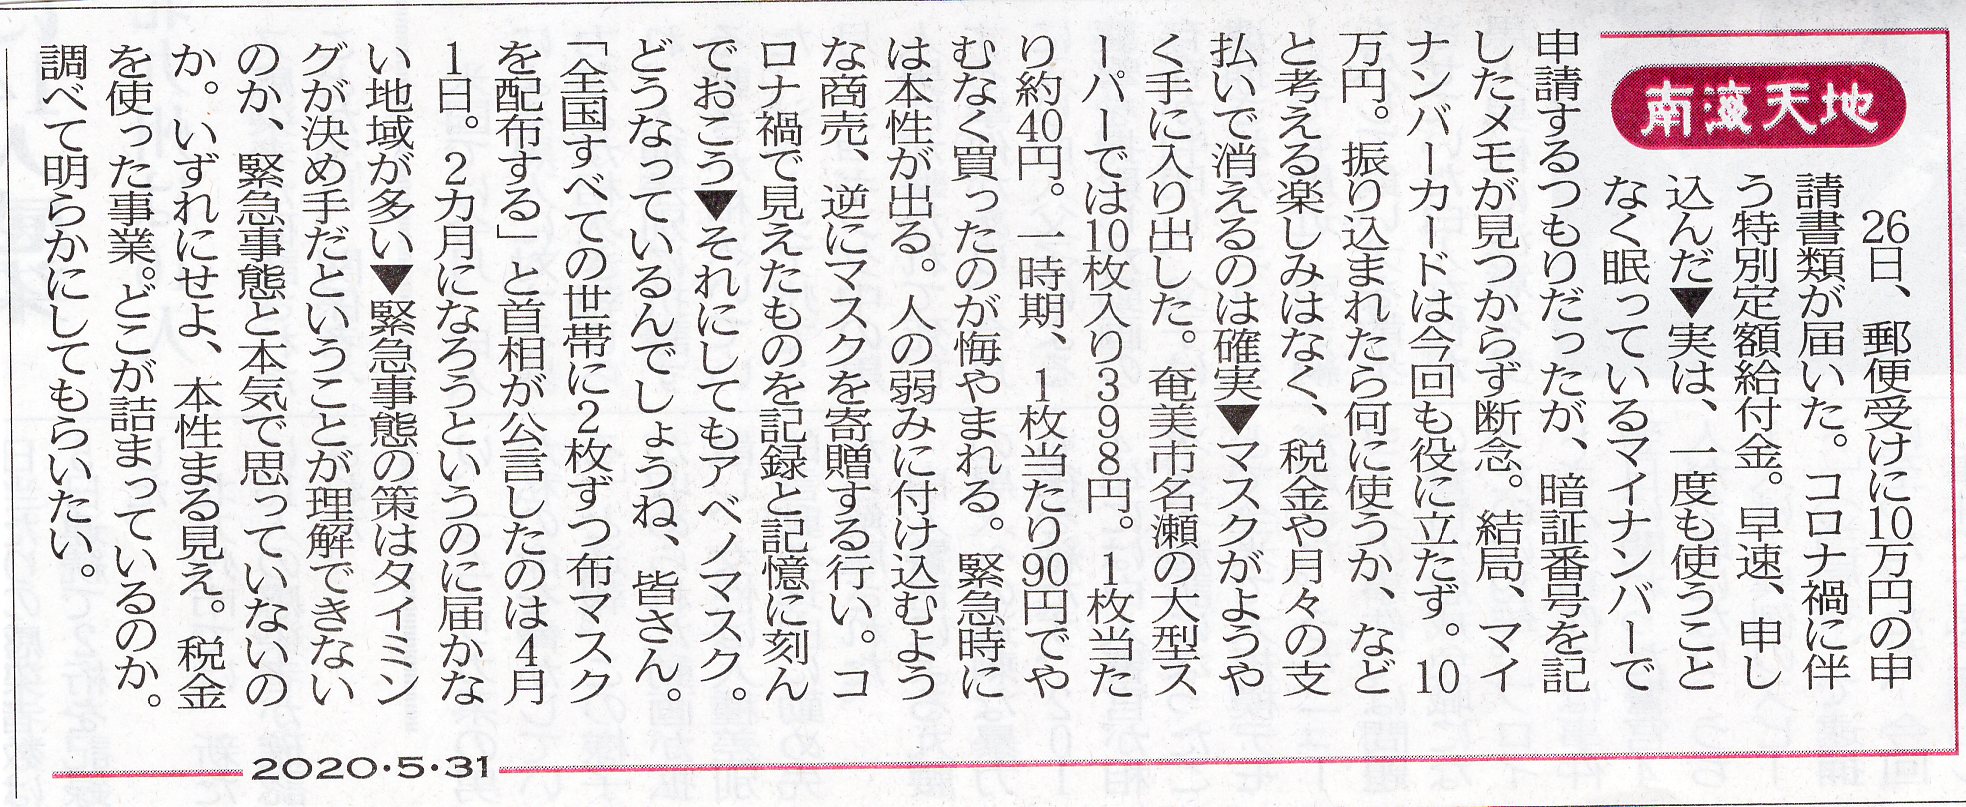 南海天地
26日、郵便受けに10万円の申
請書類が届いた。コロナ禍に伴
う特別定額給付金。早速、申し
込んだ▼実は、一度も使うこと
なく眠っているマイナンバーで
申請するつもりだったが、暗証番号を記
したメモが見つからず断念。結局、マイ
ナンバーカードは今回も役に立たず。10
万円。振り込まれたら何に使うか、など
と考える楽しみはなく、税金や月々の支
払いで消えるのは確実▼マスクがようや
く手に入り出した。奄美市名瀬の大型ス
ーパーでは10枚入り398円。1枚当た
り約40円。一時期、1枚当たり90円でや
むなく買ったのが悔やまれる。緊急時に
は本性が出る。人の弱みに付け込むよう
な商売、逆にマスクを寄贈する行い。コ
ロナ禍で見えたものを記録と記憶に刻ん
でおこう▼それにしてもアベノマスク。
どうなっているんでしょうね、皆さん。
「全国すべての世帯に2枚ずつ布マスク
を配布する」と首相が公言したのは4月
1日。2カ月になろうというのに届かな
い地域が多い▼緊急事態の策はタイミン
グが決め手だということが理解できない
のか、緊急事態と本気で思っていないの
か。いずれにせよ、本性まる見え。税金
を使った事業。どこが詰まっているのか。
調べて明らかにしてもらいたい。
2020・5・31